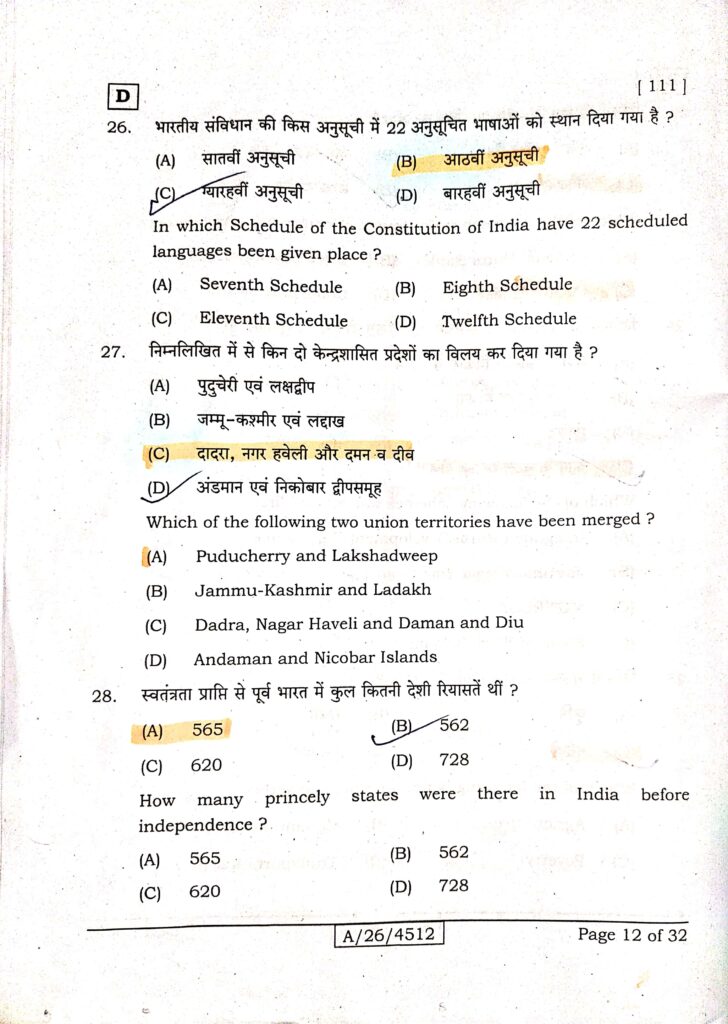 D
[ 111 ]
26. भारतीय संविधान की किस अनुसूची में 22 अनुसूचित भाषाओं को स्थान दिया गया है ?
(A) सातवीं अनुसूची (B) आठवीं अनुसूची
(C) ग्यारहवीं अनुसूची (D) बारहवीं अनुसूची
In which Schedule of the Constitution of India have 22 scheduled
languages been given place ?
(A) Seventh Schedule (B) Eighth Schedule
(C) Eleventh Schedule (D) Twelfth Schedule
27. निम्नलिखित में से किन दो केन्द्रशासित प्रदेशों का विलय कर दिया गया है ?
(A) पुदुचेरी एवं लक्षद्वीप
(B) जम्मू-कश्मीर एवं लद्दाख
(C) दादरा, नगर हवेली और दमन व दीव
(D) अंडमान एवं निकोबार द्वीपसमूह
Which of the following two union territories have been merged ?
(A) Puducherry and Lakshadweep
(B) Jammu-Kashmir and Ladakh
(C) Dadra, Nagar Haveli and Daman and Diu
(D) Andaman and Nicobar Islands
28. स्वतंत्रता प्राप्ति से पूर्व भारत में कुल कितनी देशी रियासतें थीं ?
(A) 565 (B) 562
(C) 620 (D) 728
How many princely states were there in India before
independence ?
(A) 565 (B) 562
(C) 620 (D) 728
A/26/4512 Page 12 of 32